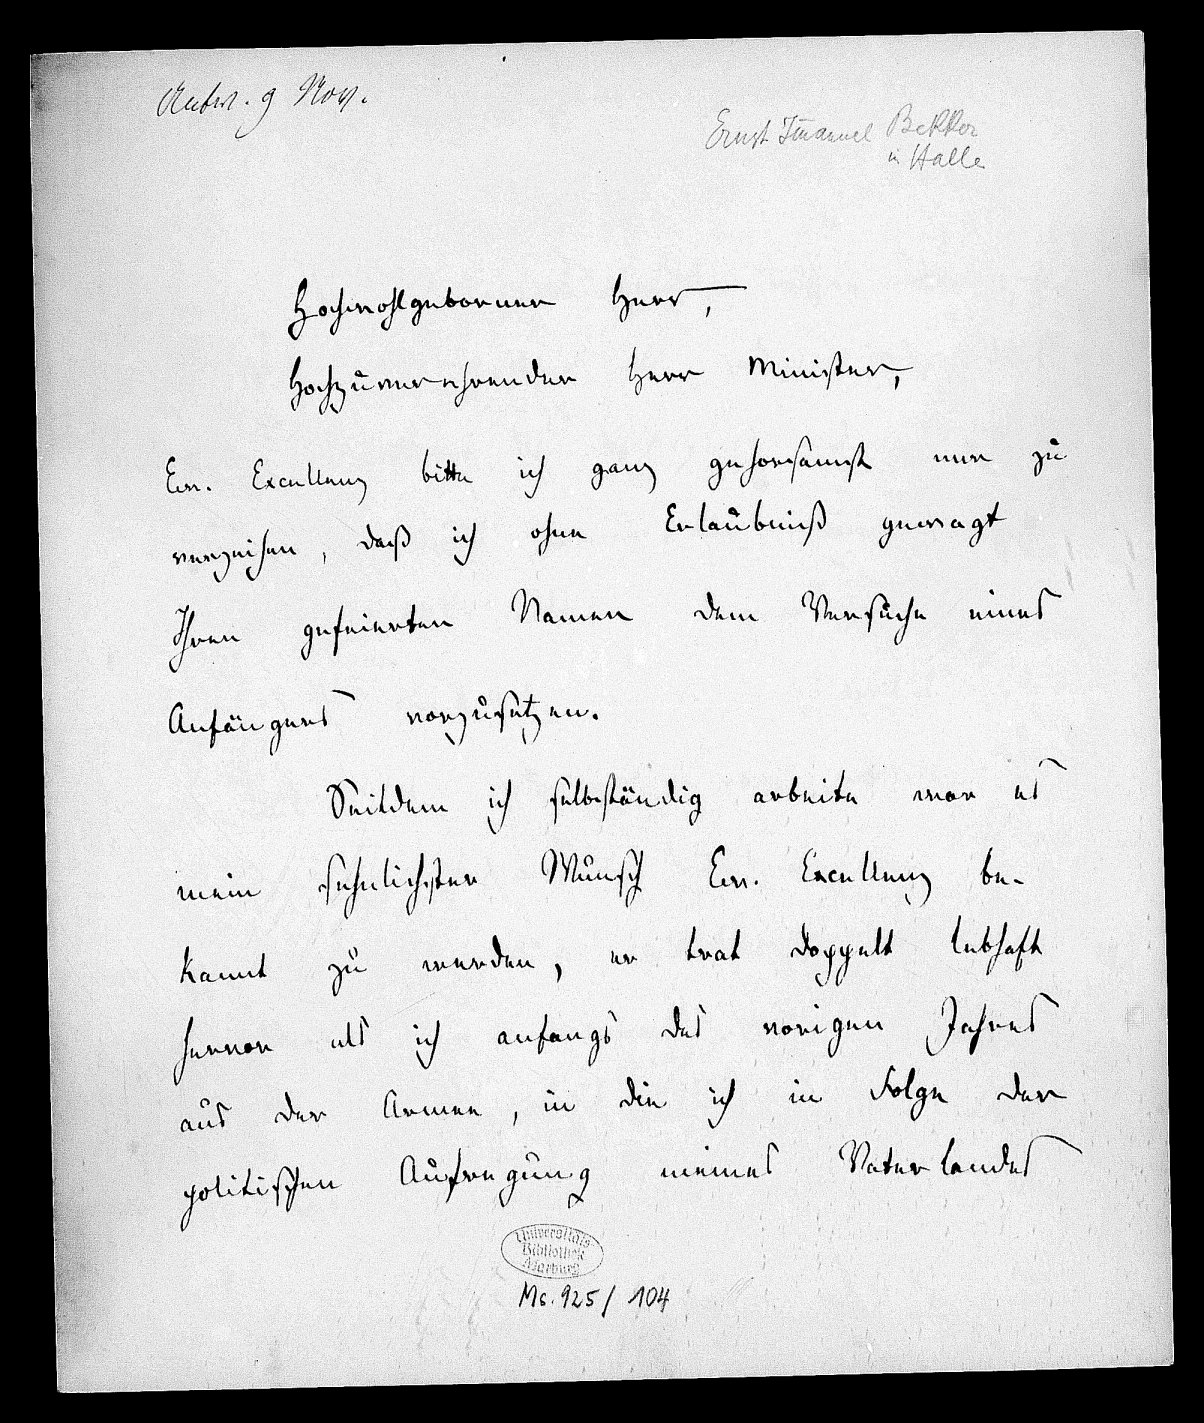 Antw. 9 Nov.
Ernst Imanuel Bekker
in Halle
Hochwohlgeborner Herr,
Hochzuverehrender Herr Minister,
Ew. Excellenz bitte ich ganz gehorsamst mir zu
verzeihen, daß ich ohne Erlaubniß gewagt
Ihren gefeierten Namen dem Versuche eines
Anfängers vorzusetzen.
Seitdem ich selbständig arbeite war es
mein sehnlichster Wunsch Ew. Excellenz be-
kannt zu werden, er trat doppelt lebhaft
hervor als ich anfangs des vorigen Jahres
aus der Armee, in die ich in Folge der
politischen Aufregung meines Vaterlandes
Universitäts
Bibliothek
Marburg
Ms. 925/ 104